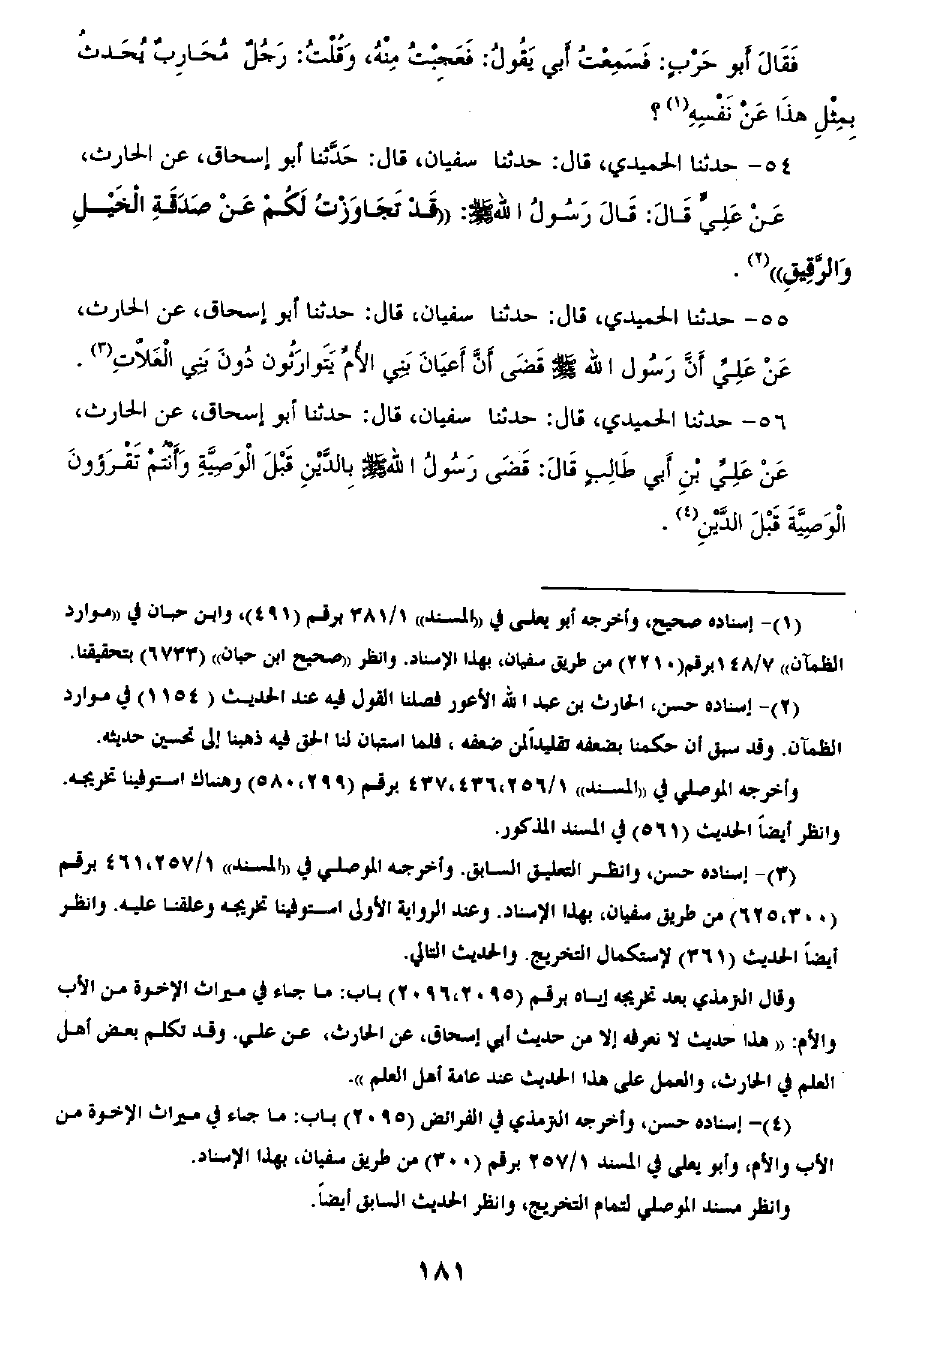 فَقَالَ أَبو حَرْبٍ: فَسَمِعْتُ أَبي يَقُولُ: فَعَجِبْتُ مِنْهُ، وَقُلْتُ: رَجُلٌ مُحَارِبٌ يُحَدثُ
بِمِثْلِ هذَا عَنْ نَفْسِهِ(١)؟
٥٤- حدثنا الحميدي، قال: حدثنا سفيان، قال: حَدَّثنا أبو إسحاق، عن الحارث،
عَنْ عَلِيٍّ قَالَ: قَالَ رَسُولُ اللهِ ﷺ: ((قَدْ تَجَاوَزْتُ لَكُمْ عَنْ صَدَقَةِ الْخَيْلِ
وَالرَّقِيقِ))(٢) .
٥٥- حدثنا الحميدي، قال: حدثنا سفيان، قال: حدثنا أبو إسحاق، عن الحارث،
عَنْ عَلِيٍّ أَنَّ رَسُول الله ﷺ قَضَى أَنَّ أَعيَانَ بَنِي الأُمِّ يَتَوارَثُون دُونَ بَنِي الْعَلاَّتِ(٣) .
٥٦- حدثنا الحميدي، قال: حدثنا سفيان، قال: حدثنا أبو إسحاق، عن الحارث،
عَنْ عَلِيِّ بْنِ أَبي طَالِبٍ قَالَ: قَضَى رَسُولُ اللهِ ﷺ بِالدَّيْنِ قَبْلَ الْوَصِيَّةِ وَأَنْتُمْ تَقْرَؤُونَ
الْوَصِيَّةَ قَبْلَ الدَّيْنِ(٤) .
(١)- إسناده صحيح، وأخرجه أبو يعلى في ((المسند)) ٣٨١/١ برقم (٤٩١)، وابن حبان في ((موارد
الظمآن)) ١٤٨/٧ برقم(٢٢١٠) من طريق سفيان، بهذا الإسناد. وانظر ((صحيح ابن حبان)) (٦٧٣٣) بتحقيقنا.
(٢)- إسناده حسن، الحارث بن عبد الله الأعور فصلنا القول فيه عند الحديث ( ١١٥٤) في موارد
الظمآن. وقد سبق أن حكمنا بضعفه تقليداً لمن ضعفه ، فلما استبان لنا الحق فيه ذهبنا إلى تحسين حديثه.
وأخرجه الموصلي في ((المسند)) ٢٥٦/١،٤٣٦،٤٣٧ برقم (٥٨٠،٢٩٩) وهناك استوفينا تخريجه.
وانظر أيضاً الحديث (٥٦١) في المسند المذكور.
(٣)- إسناده حسن، وانظر التعليق السابق. وأخرجه الموصلي في ((المسند)) ٤٦١،٢٥٧/١ برقم
(٦٢٥،٣٠٠) من طريق سفيان، بهذا الإسناد. وعند الرواية الأولى استوفينا تخريجه وعلقنا عليه. وانظر
أيضاً الحديث (٣٦١) لإستكمال التخريج. والحديث التالي.
وقال الترمذي بعد تخريجه إياه برقم (٢٠٩٦،٢٠٩٥) باب: ما جاء في ميراث الإخوة من الأب
والأم: (( هذا حديث لا نعرفه إلا من حديث أبي إسحاق، عن الحارث، عن علي. وقد تكلم بعض أهل
العلم في الحارث، والعمل على هذا الحديث عند عامة أهل العلم )).
(٤)- إسناده حسن، وأخرجه الترمذي في الفرائض (٢٠٩٥) باب: ما جاء في ميراث الإخوة من
الأب والأم، وأبو يعلى في المسند ٢٥٧/١ برقم (٣٠٠) من طريق سفيان، بهذا الإسناد.
وانظر مسند الموصلي لتمام التخريج، وانظر الحديث السابق أيضاً.
١٨١